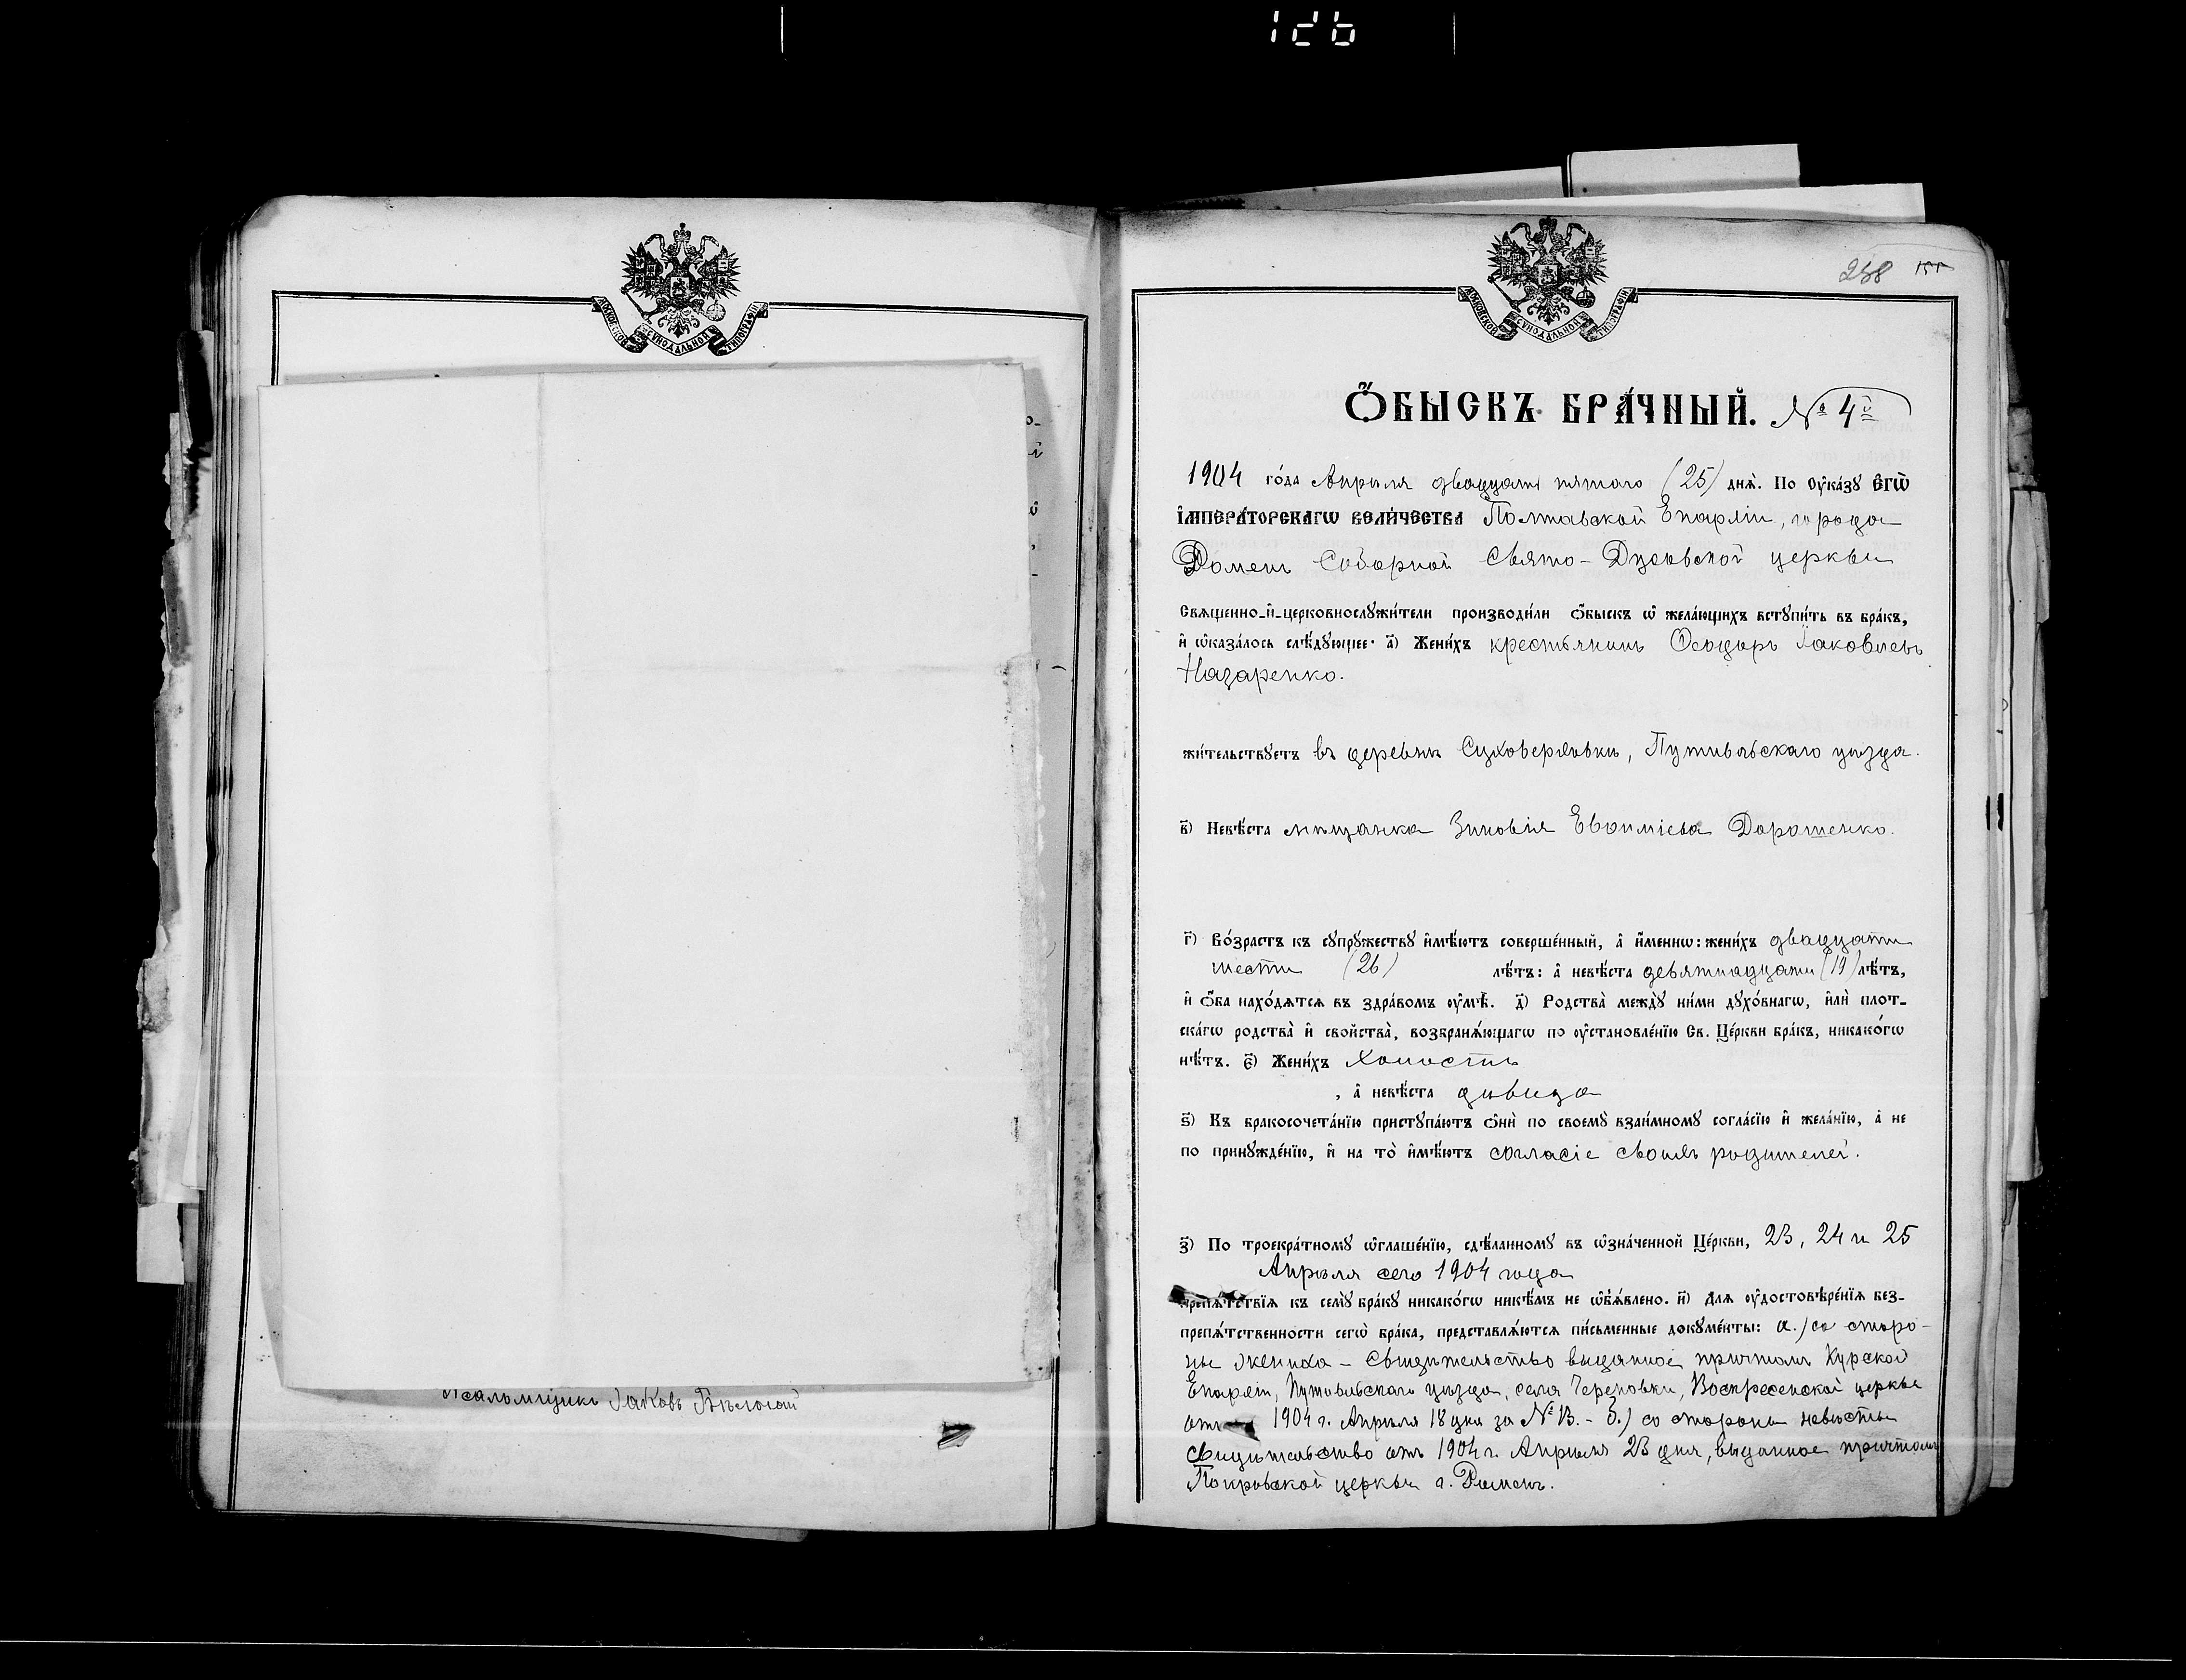 126
МОСКОВСКОЙ СѴНОДАЛЬНОЙ ТИПОГРАФІИ
Псаломщикъ Іаковъ
258 155
МОСКОВСКОЙ СѴНОДАЛЬНОЙ ТИПОГРАФІИ
Ѻ҆БЫСКЪ БРА́ЧНЫЙ. № 4й
1904 го́да Апрѣля двадцать пятаго (25) днѧ̀. По оу҆ка́зꙋ Є҆ГѠ̀
І҆МПЕРА́ТОРСКАГѠ ВЕЛИ́ЧЕСТВА Полтавской Епархіи, города
Роменъ Соборной Свято-Духовской церкви
Свѧщенно-и҆-церковнослꙋжи́тели производи́ли ѻ҆́быскъ ѡ҆ жела́ющихъ встꙋпи́ть въ бра́къ,
и҆ ѡ҆каза́лось слѣ́дꙋющее: а҃) Жени́хъ крестьянинъ Ѳеодоръ Іаковлевъ
Назаренко.
жи́тельствꙋетъ въ деревнѣ Суховерховкѣ, Путивльскаго уѣзда.
в҃) Невѣ́ста мѣщанка Зиновія Евѳиміева Дорошенко.
г҃) Во́зрастъ къ сꙋпрꙋ́жествꙋ и҆мѣ́ютъ соверше́нный, а҆ и҆́меннѡ: жени́хъ двадцати
шести (26) лѣ́тъ: а҆ невѣ́ста девятнадцати (19) лѣ́тъ,
и҆ ѻ҆́ба нахо́дѧтсѧ въ здра́вомъ оу҆мѣ̀. д҃) Родства̀ междꙋ̀ ни́ми дꙋхо́внагѡ, и҆лѝ плот-
ска́гѡ родства̀ и҆ свойства̀, возбранѧ́ющагѡ по оу҆становле́нїю Св. Це́ркви бра́къ, никако́гѡ
нѣ́тъ. є҃) Жени́хъ холостъ
, а҆ невѣ́ста дѣвица
ѕ҃) Къ бракосочета́нїю пристꙋпа́ютъ ѻ҆нѝ по своемꙋ̀ взаи́мномꙋ согла́сїю и҆ жела́нїю, а҆ не
по принꙋжде́нїю, и҆ на то̀ и҆мѣ́ютъ согласіе своихъ родителей.
з҃) По троекра́тномꙋ ѡ҆глаше́нїю, сдѣ́ланномꙋ въ ѡ҆зна́ченной Це́ркви, 23, 24 и 25
Апрѣля сего 1904 года
препѧ́тствїѧ къ семꙋ̀ бра́кꙋ никако́гѡ никѣ́мъ не ѡ҆б̾ѧ́влено. и҃) Для оу҆достовѣре́нїѧ без-
препѧ́тственности сегѡ̀ бра́ка, представлѧ́ютсѧ пи́сьменные докꙋме́нты: а.) со сторо-
ны жениха – свидѣтельство выданное причтомъ Курской
Епархіи, Путивльскаго уѣзда, села Череповки, Воскресенской церкви
отъ 1904 г. Апрѣля 18 дня за № 13. – б.) со стороны невѣсты
свидѣтельство отъ 1904 г. Апрѣля 23 дня, выданное причтомъ
Покровской церкви г. Роменъ.